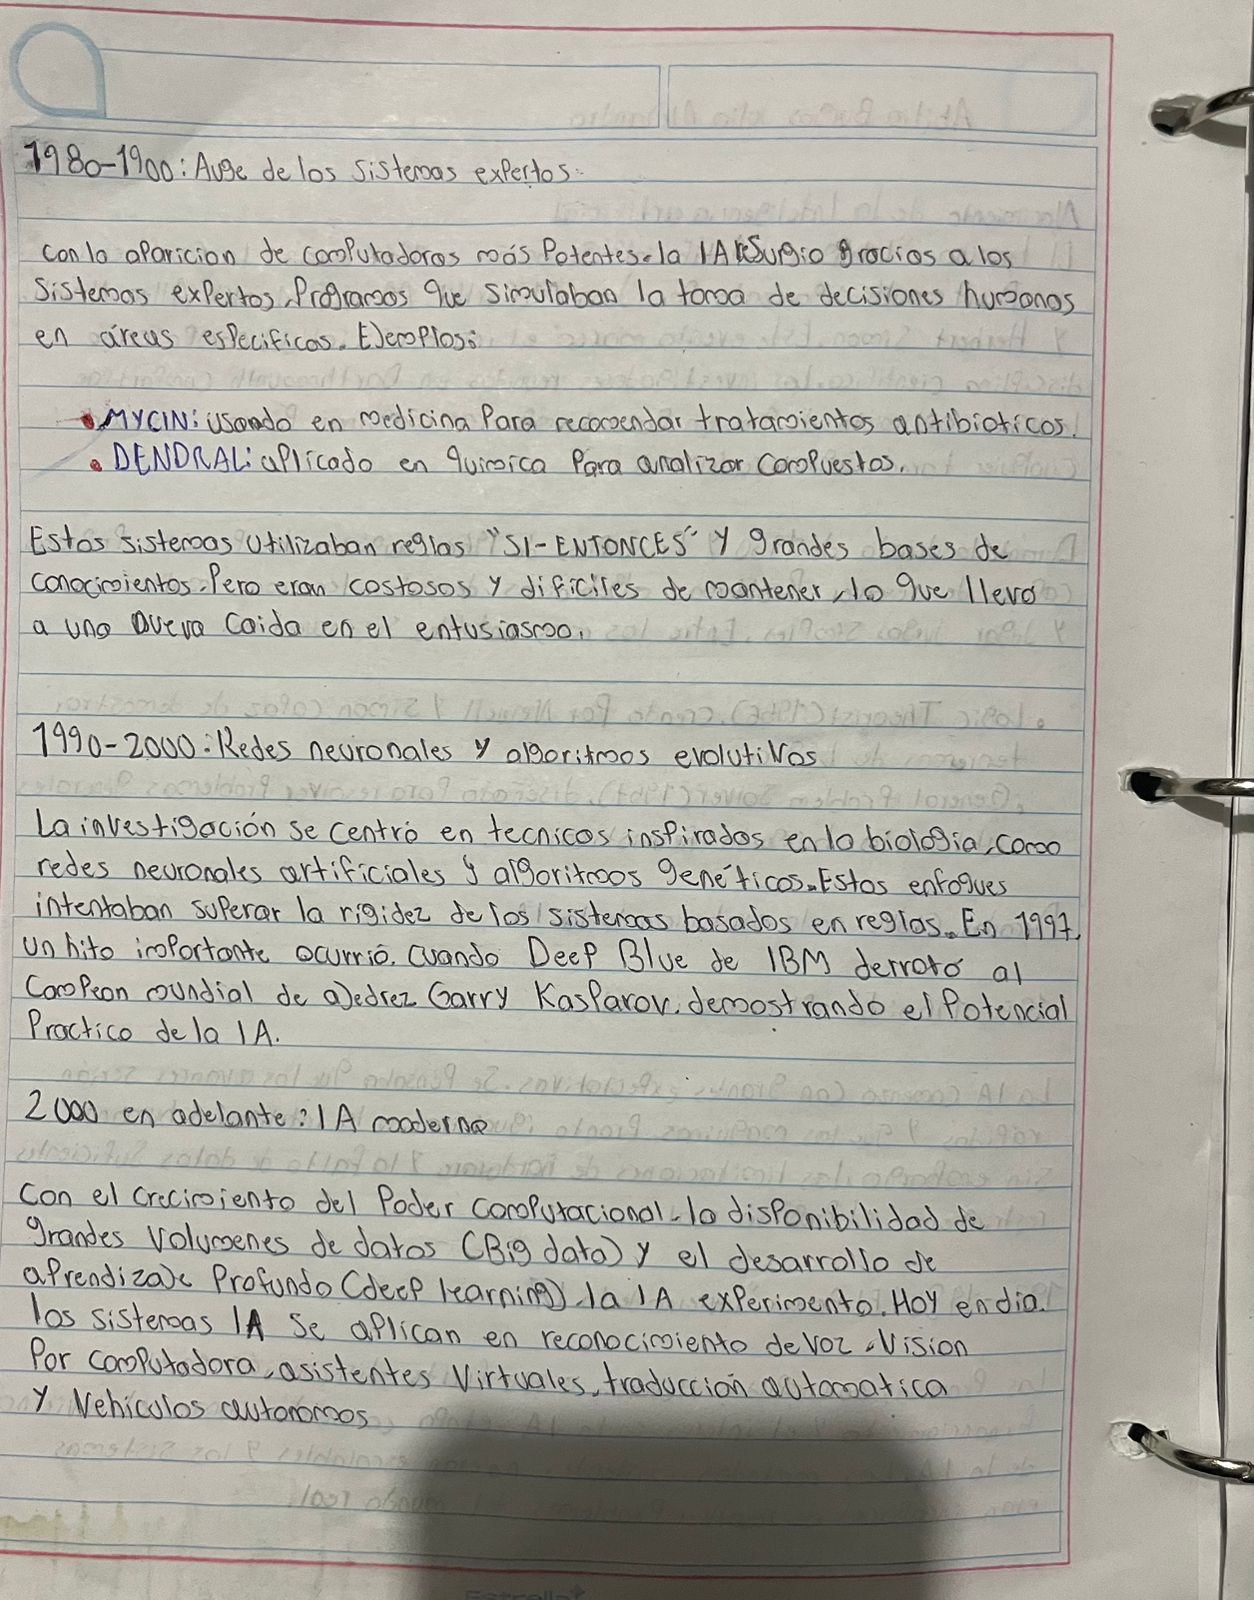 1980-1900: Auge de los sistemas expertos.
con la aparicion de computadoras más Potentes. la IA resurgio gracias a los
Sistemas expertos, Programas que simulaban la toma de decisiones humanas
en áreas especificas. Ejemplos:
• MYCIN: usando en medicina Para recomendar tratamientos antibioticos.
• DENDRAL: aplicado en quimica Para analizar compuestos.
Estos sistemas utilizaban reglas "SI-ENTONCES" y grandes bases de
conocimientos. Pero eran costosos y dificiles de mantener, lo que llevo
a una nueva caida en el entusiasmo.
1990-2000: Redes neuronales y algoritmos evolutivos
La investigación se centró en tecnicos inspirados en la biologia, como
redes neuronales artificiales y algoritmos genéticos. Estos enfoques
intentaban superar la rigidez de los sistemas basados en reglas. En 1997,
un hito importante ocurrió. Cuando Deep Blue de IBM derrotó al
Campeon mundial de ajedrez Garry Kasparov. demostrando el Potencial
Practico de la IA.
2000 en adelante: IA moderna
Con el crecimiento del Poder computacional. la disponibilidad de
grandes volumenes de datos (Big data) y el desarrollo de
aprendizaje Profundo (deep learning). la IA experimento. Hoy en dia.
los sistemas IA se aplican en reconocimiento de voz, Vision
Por computadora, asistentes Virtuales, traducción automatica
y Vehiculos autonomos